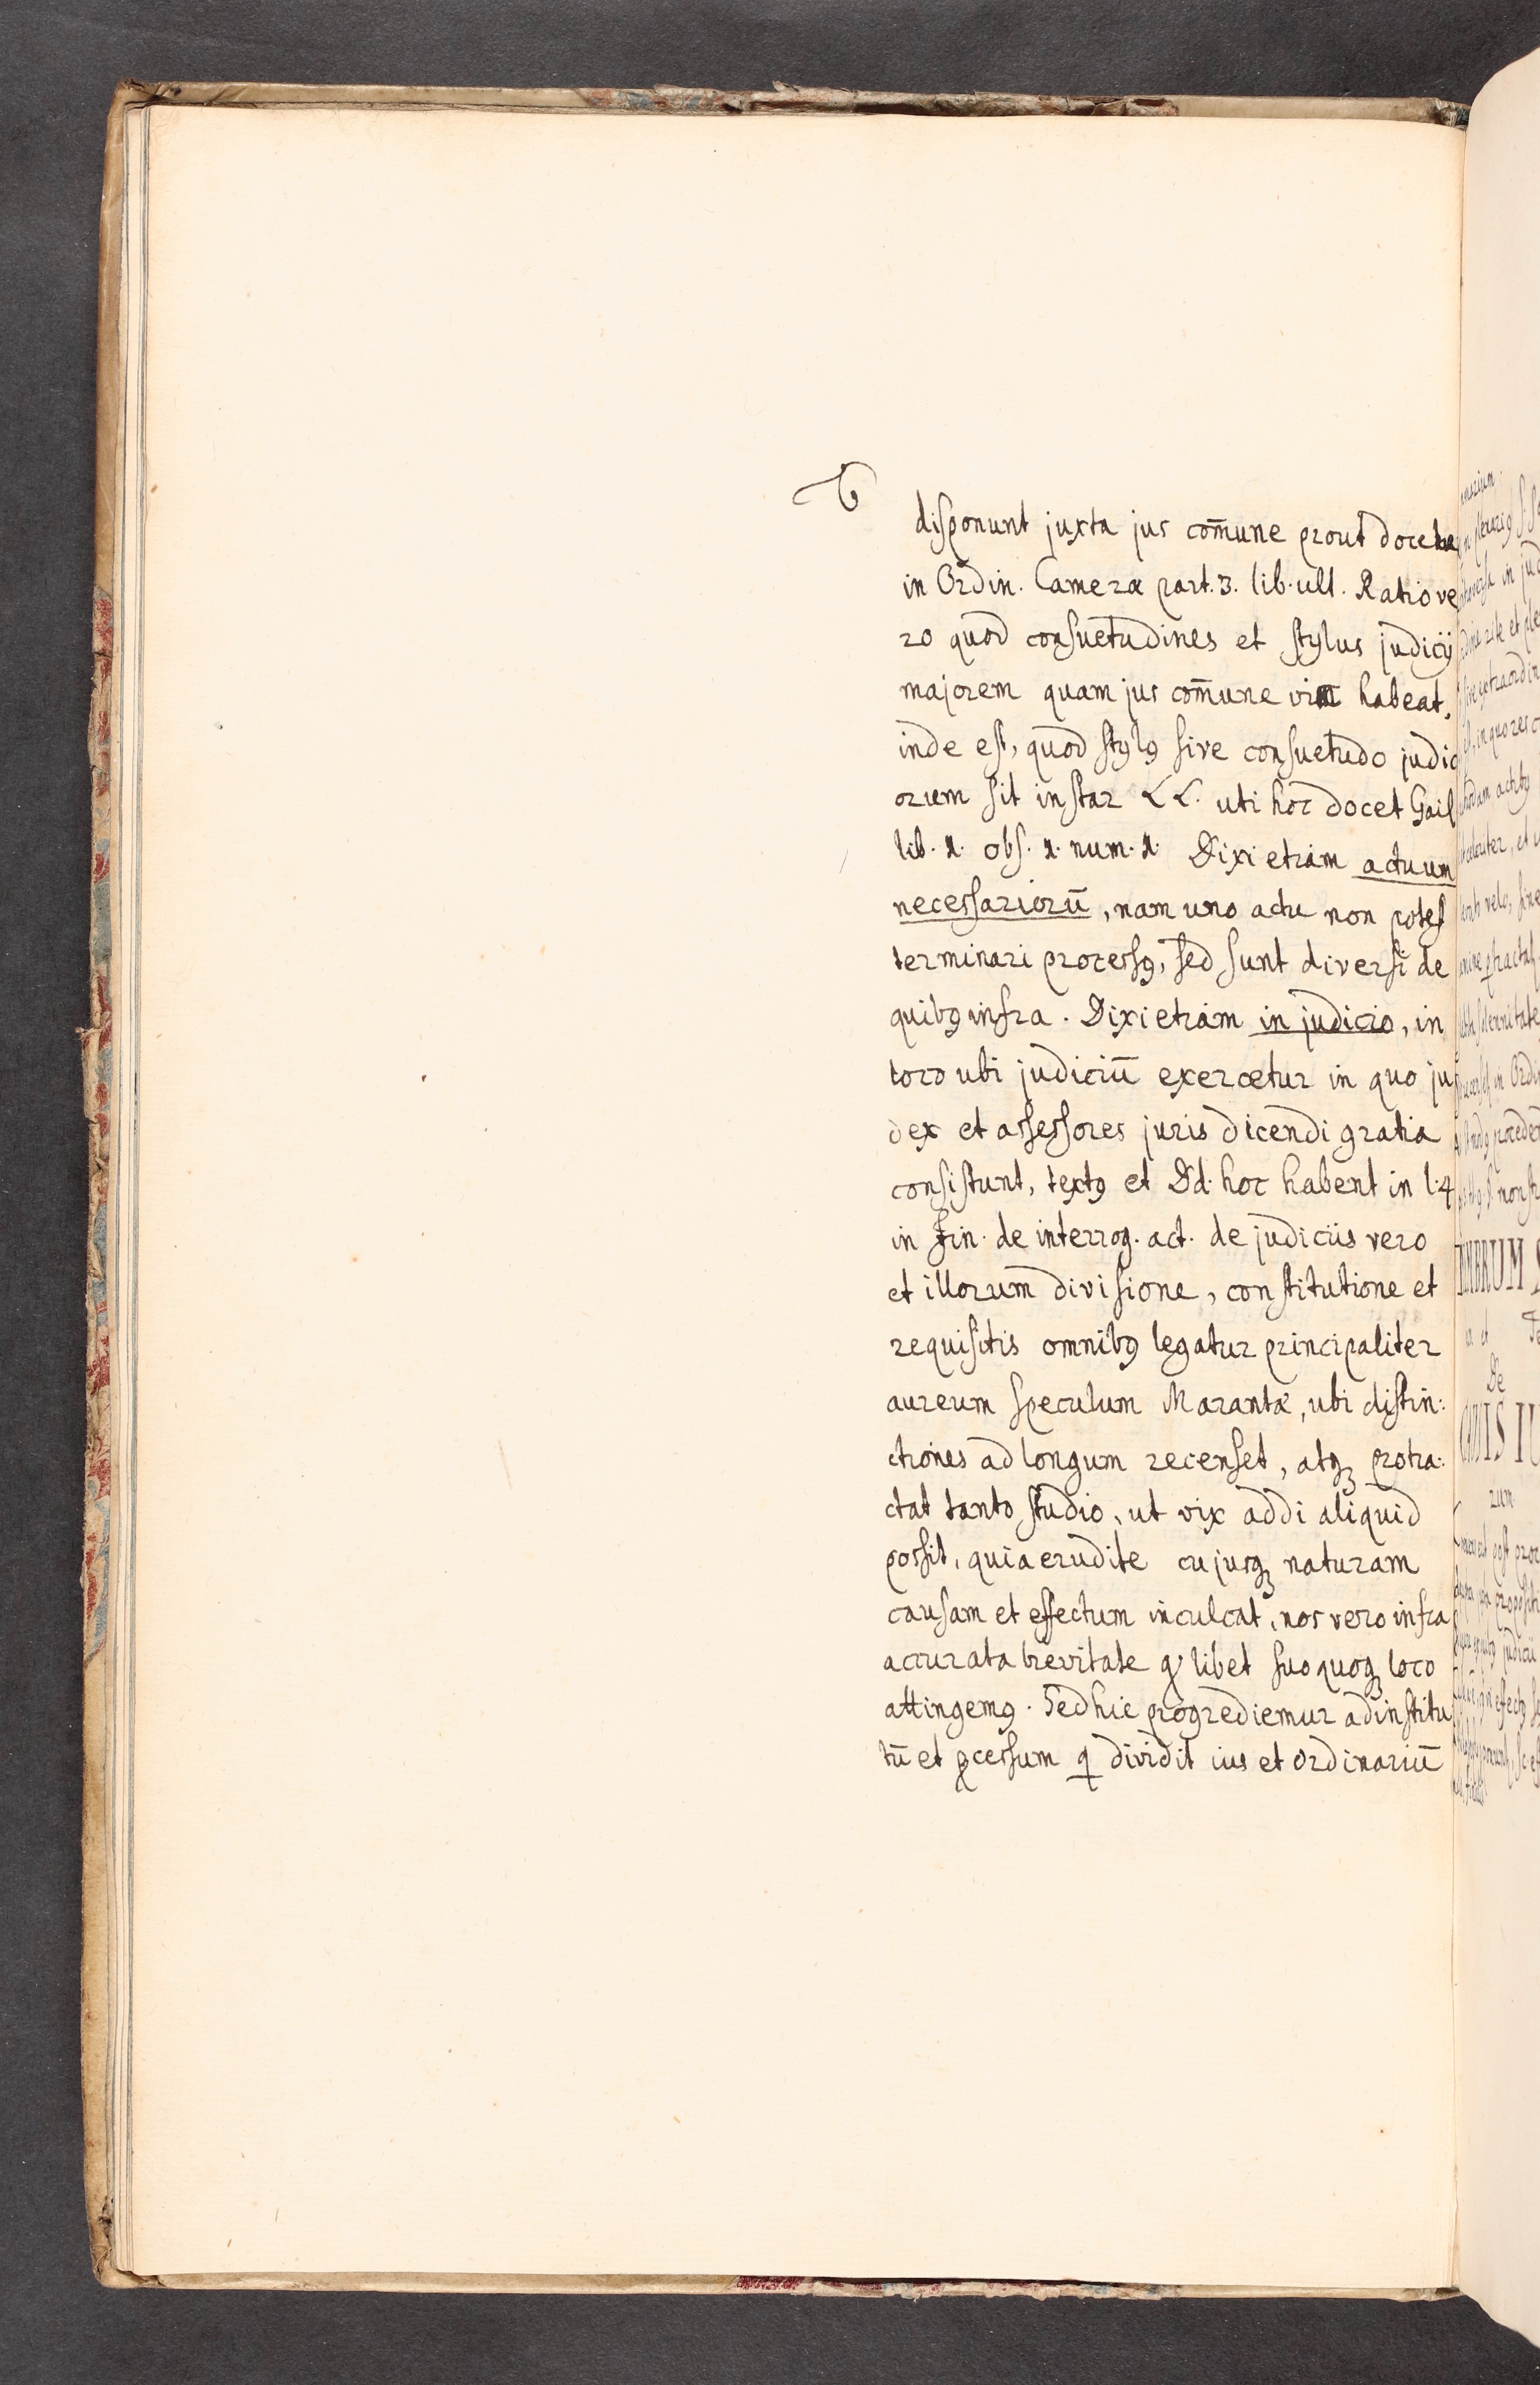 disponunt juxta jus com̄une prout docetur
in Ordin. Cameræ part. 3. lib. ult. Ratio ve
ro quod consuetudines et stylus judicij
majorem quam jus com̄une vim habeat,
inde est, quod stylꝰ sive consuetudo judici
orum sit instar LL. uti hoc docet Gail
lib. 1. obs. 1. num. 1. Dixi etiam actuum
necessariorū, nam uno actu non potest
terminari processꝰ, sed sunt diversi de
quibꝰ infra. Dixi etiam in judicio, in
loco ubi judiciū exercetur in quo ju
dex et assessores juris dicendi gratia
consistunt, textꝰ et Dd. hoc habent in l. 4
in fin. de interrog. act. de judiciis vero
et illorum divisione, constitutione et
requisitis omnibꝰ legatur principaliter
aureum speculum Marantæ, ubi distin:
ctiones ad longum recenset, atqꝫ protra:
ctat tanto studio, ut vix addi aliquid
possit, quia erudite cujusqꝫ naturam
causam et effectum inculcat, nos vero infra
accurata brevitate qꝰlibet suo quoqꝫ loco
attingemꝰ. Sed hic progrediemur ad institu
tū et ꝓcessum ꝗ dividit ius et Ordinariū